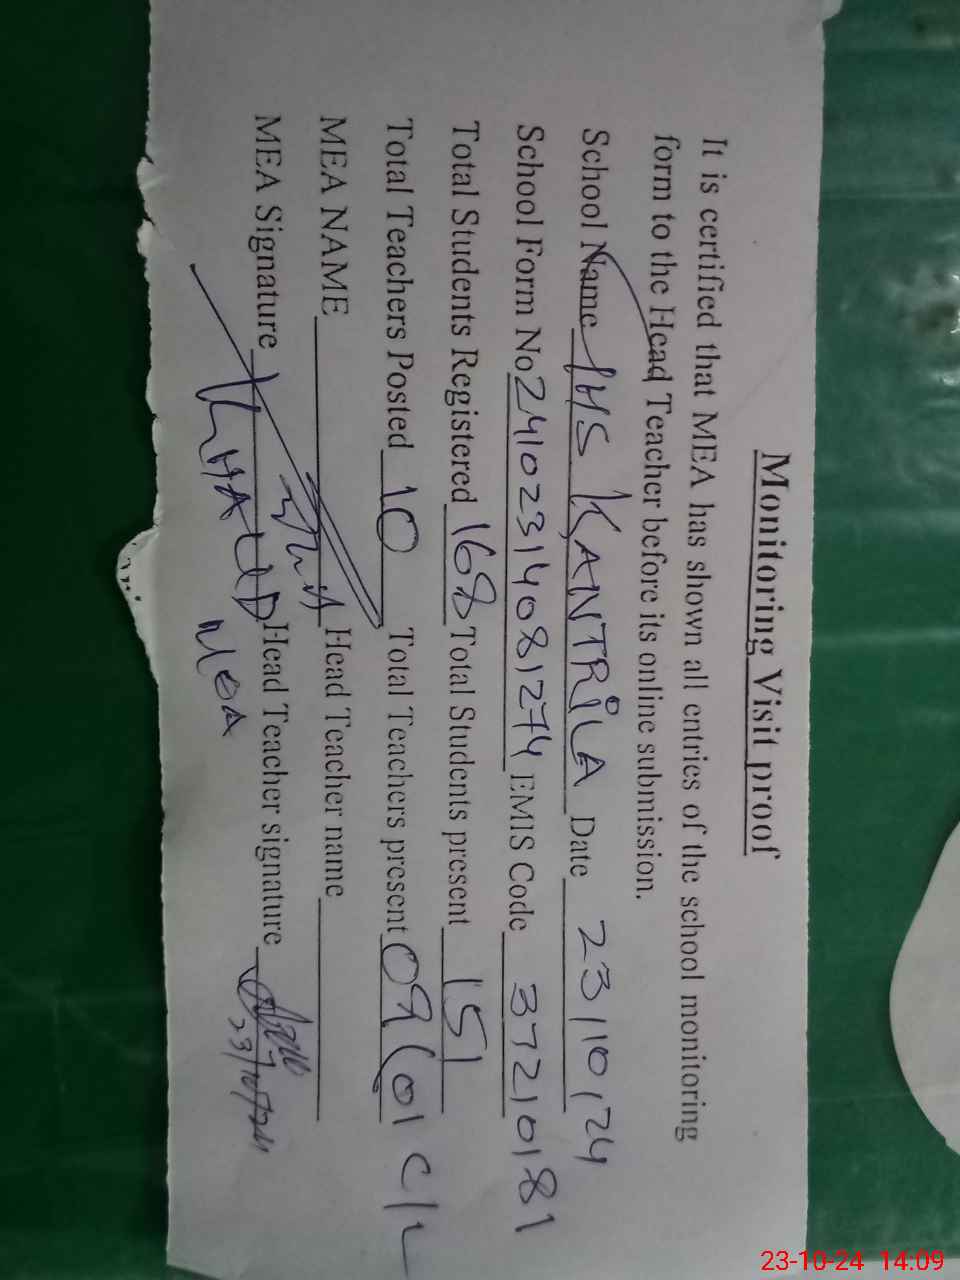 Monitoring Visit proof
It is certified that MEA has shown all entries of the school monitoring
form to the Head Teacher before its online submission.
School Name HS KANTRiLA Date 23/10/24
School Form No 24102314081274 EMIS Code 37210181
Total Students Registered 168 Total Students present 151
Total Teachers Posted 10 Total Teachers present 09 (01 C/L
MEA NAME Head Teacher name
MEA Signature Head Teacher signature
23/10/24
23-10-24 14:09